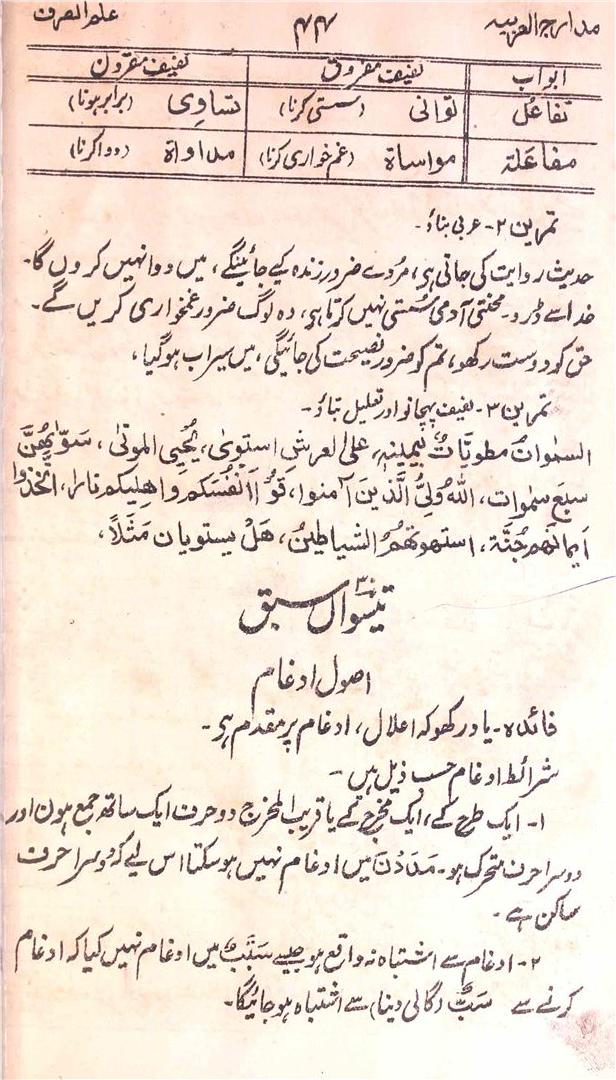 مدارج العربیہ ۴۴ علم الصرف
ابواب لفیف مفروق لفیف مقرون
تفاعُل توانی (سستی کرنا) تساوِی (برابر ہونا)
مفاعَلۃ مواساۃ (غم خواری کرنا) مداواۃ (دوا کرنا)
تمرین ۲- عربی بناؤ-
حدیث روایت کی جاتی ہی، مُردے ضرور زندہ کیے جائینگے، میں دوا نہیں کروں گا۔
خدا سے ڈرو۔ محنتی آدمی سُستی نہیں کرتا ہی، وہ لوگ ضرور غمخواری کریں گے۔
حق کو دوست رکھو، تم کو ضرور نصیحت کی جائیگی، میں سیراب ہو گیا،
تمرین ۳- لفیف پہچانو اور تعلیل بتاؤ-
السمٰوات مطویّاتٌ بیمینہٖ، علی العرش استویٰ، یُحیِی الموتٰی، سَوّٰىھُنَّ
سبع سمٰوات، اللّٰہُ ولِیُّ الَّذینَ آمنوا، قُوا اَنْفُسَکم واھلیکم نارا، اتَّخذُوا
اَیمانَھم جُنَّۃ، استھوتھُمُ الشیاطینُ، ھَلْ یستویان مَثَلاً،
تیسواں ۳۰ سبق
اصول ادغام
فائدہ- یاد رکھو کہ اعلال، ادغام پر مقدم ہی-
شرائط ادغام حسب ذیل ہیں-
۱- ایک طرح کے، ایک مخرج کے یا قریب المخرج دو حرف ایک ساتھ جمع ہون اور
دوسرا حرف متحرک ہو- مَدَدْنَ میں ادغام نہیں ہو سکتا اس لیے کہ دوسرا حرف
ساکن ہے-
۲- ادغام سے اشتباہ نہ واقع ہو جیسے سَبَبٌ میں ادغام نہیں کیا کہ ادغام
کرنے سے سَبٌّ (گالی دینا) سے اشتباہ ہو جائیگا-